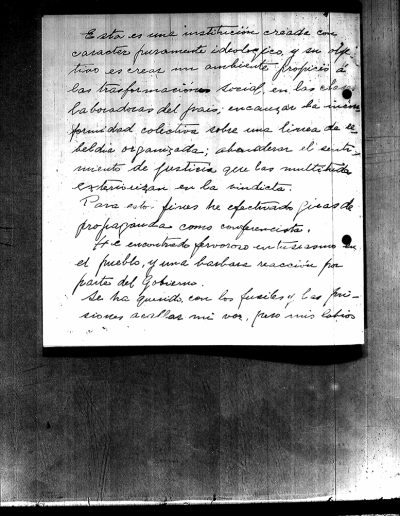 Esta es una institución creada con
caracter puramente ideologico, y su obje-
tivo es crear un ambiente propicio á
las trasformaciones social, en las clases
laboradoras del pais, encauzar la incon-
formidad colectiva sobre una linea de re-
beldia organizada; abanderar el senti-
miento de justicia que las multitudes
exteriorizan en la vindicta.
Para estos fines he efectuado giras de
propaganda como conferencista.
He encontrado fervoroso entusiasmo en
el pueblo, y una barbara reacción por
partes del Gobierno.
Se ha querido con los fusiles y las pri-
siones acallar mi voz, pero mis labios